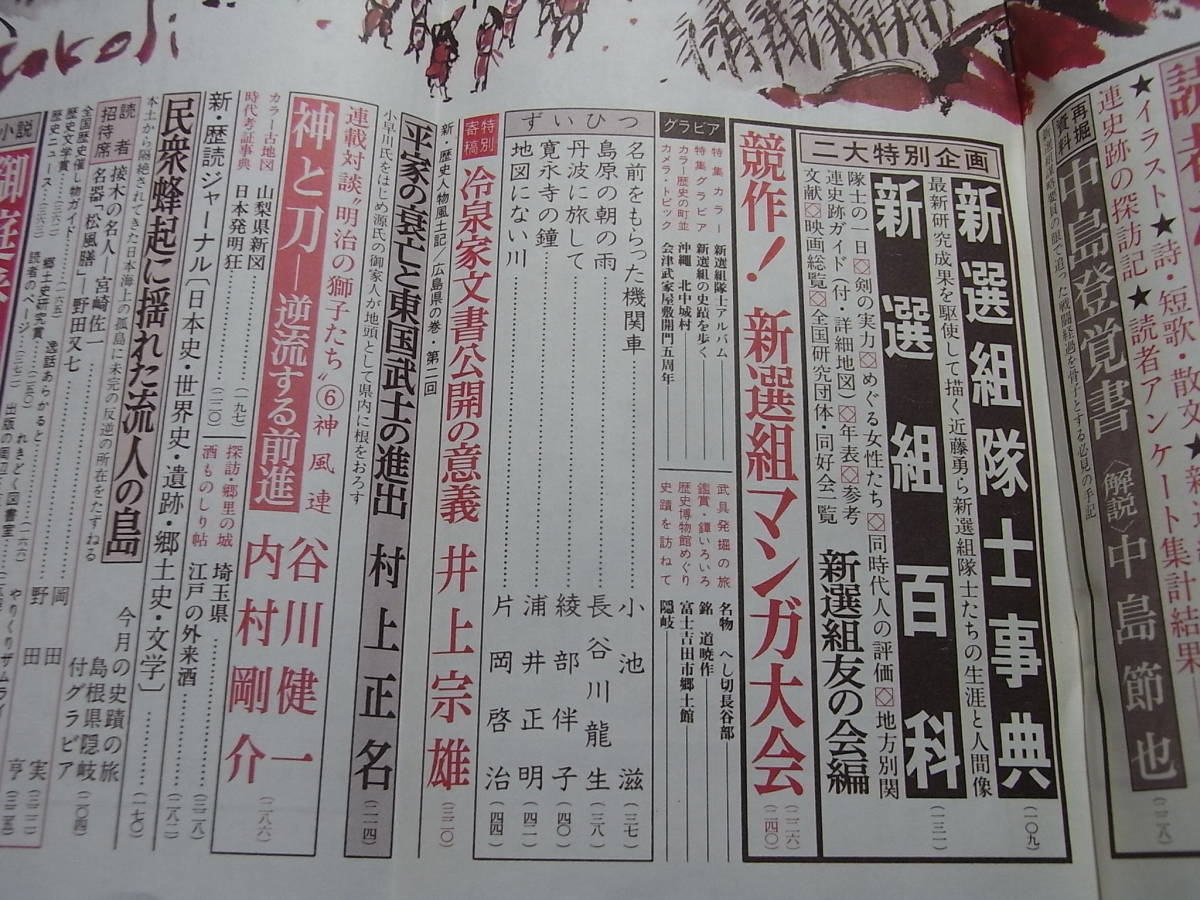 ★イラスト★詩・短歌・散文★
連史跡の探訪記★読者アンケート集計結果
再掘資料
中島登覚書〈解説〉中島節也
(二二八)
二大特別企画
新選組隊士事典
(一〇九)
最新研究成果を駆使して描く近藤勇ら新選組隊士たちの生涯と人間像
新選組百科
(一三一)
隊士の一日◇剣の実力◇めぐる女性たち◇同時代人の評価◇地方別関
連史跡ガイド(付・詳細地図)◇年表◇参考
文献◇映画総覧◇全国研究団体・同好会一覧
新選組友の会編
競作!新選組マンガ大会
(二二六)
(二四〇)
グラビア
特集カラー 新選組隊士アルバム
特集グラビア 新選組の史蹟を歩く
カラー歴史の町並 沖縄 北中城村
カメラ・トピック 会津武家屋敷開門五周年
武具発掘の旅 名物 へし切長谷部
鑑賞・鐔いろいろ 銘 道暁作
歴史博物館めぐり 富士吉田市郷土館
史蹟を訪ねて 隠岐
ずいひつ
名前をもらった機関車 小池滋 (三七)
島原の朝の雨 長谷川龍生 (三八)
丹波に旅して 綾部伴子 (四〇)
寛永寺の鐘 浦井正明 (四二)
地図にない川 片岡啓治 (四四)
特別寄稿
冷泉家文書公開の意義 井上宗雄 (三二〇)
新・歴史人物風土記/広島県の巻・第二回
平家の衰亡と東国武士の進出 村上正名 (二一四)
小早川氏をはじめ源氏の御家人が地頭として県内に根をおろす
連載対談“明治の獅子たち”⑥神風連
神と刀―逆流する前進
谷川健一
内村剛介
(二八六)
カラー古地図 山梨県新図
時代考証事典 日本発明狂 (一九七)
探訪・郷里の城 埼玉県 (三二八)
酒ものしり帖 江戸の外来酒
新・歴読ジャーナル〔日本史・世界史・遺跡・郷土史・文学〕 (二八二)
民衆蜂起に揺れた流人の島 (一七〇)
本土から隔絶されてきた日本海上の孤島に未完の反逆の所在をたずねる
今月の史蹟の旅
島根県隠岐
付グラビア
読者招待席
接木の名人 宮崎佐一
名器「松風膳」―野田又七 (二〇四)
全国歴史催し物ガイド
歴史文学賞
歴史ニュース
郷土史研究賞
読者のページ
逸話あらかると
れきどく図書室
岡田実
野田亨
小説
やりくりザムライ